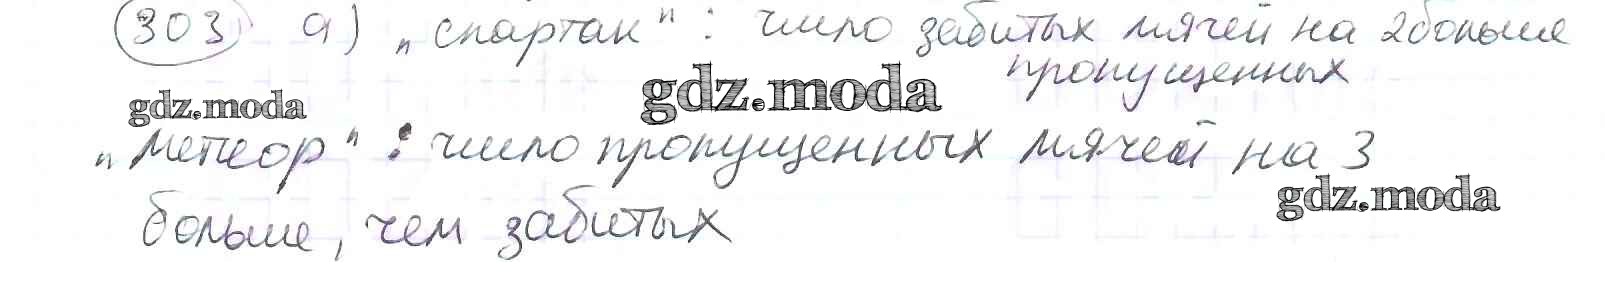 303 а) „Спартак": число забитых мячей на 2 больше
пропущенных
gdz.moda
gdz.moda
„Метеор": число пропущенных мячей на 3
gdz.moda
больше, чем забитых